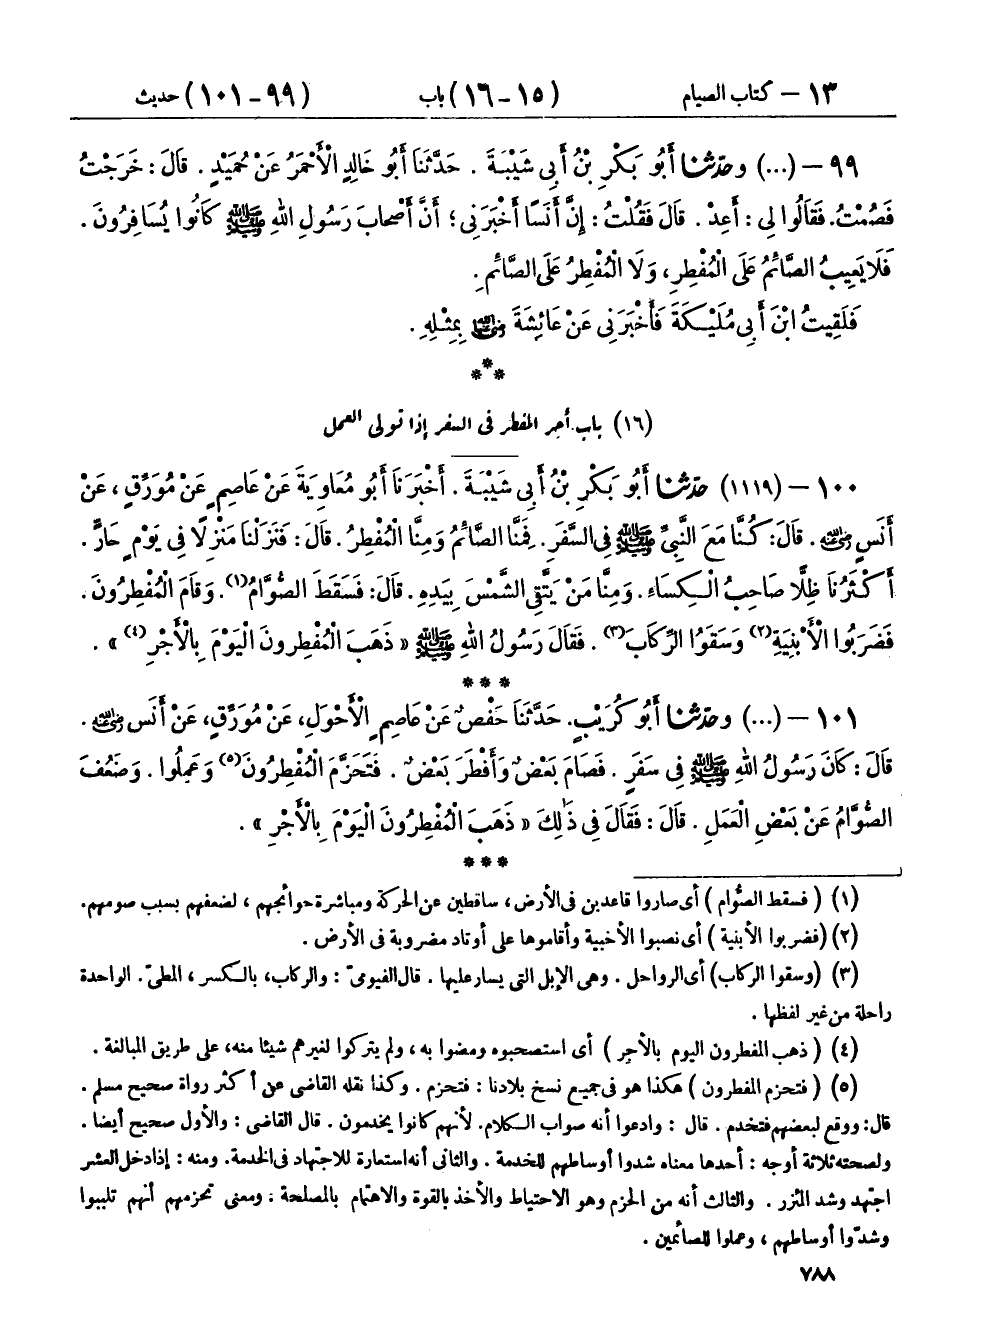 ١٣ – كتاب الصيام (١٥ - ١٦) باب (٩٩ - ١٠١) حديث
٩٩ – (...) وحدّثنا أَبُو بَكْرِ بْنُ أَبِي شَيْبَةَ . حَدَّثَنَا أَبُو خَالِدٍ الْأَحْمَرُ عَنْ حُمَيْدٍ . قَالَ : خَرَجْتُ
فَصُمْتُ. فَقَالُوا لِي : أَعِدْ . قَالَ فَقُلْتُ : إِنَّ أَنَسًا أَخْبَرَنِي ؛ أَنَّ أَصْحَابَ رَسُولِ اللهِ ﷺ كَانُوا يُسَافِرُونَ .
فَلَا يَعِيبُ الصَّائِمُ عَلَى الْمُفْطِرِ ، وَلَا الْمُفْطِرُ عَلَى الصَّائِمِ .
فَلَقِيتُ ابْنَ أَبِي مُلَيْكَةَ فَأَخْبَرَنِي عَنْ عَائِشَةَ رضي الله عنها بِمِثْلِهِ .
(١٦) باب أجر المفطر فى السفر إذا تولى العمل
١٠٠ – (١١١٩) حدّثنا أَبُو بَكْرِ بْنُ أَبِي شَيْبَةَ . أَخْبَرَنَا أَبُو مُعَاوِيَةَ عَنْ عَاصِمٍ عَنْ مُوَرِّقٍ ، عَنْ
أَنَسٍ رضي الله عنه . قَالَ: كُنَّا مَعَ النَّبِيِّ ﷺ فِي السَّفَرِ . فَمِنَّا الصَّائِمُ وَمِنَّا الْمُفْطِرُ . قَالَ : فَنَزَلْنَا مَنْزِلًا فِي يَوْمٍ حَارٍّ .
أَكْثَرُنَا ظِلًّا صَاحِبُ الْكِسَاءِ . وَمِنَّا مَنْ يَتَّقِي الشَّمْسَ بِيَدِهِ . قَالَ: فَسَقَطَ الصُّوَّامُ(١). وَقَامَ الْمُفْطِرُونَ .
فَضَرَبُوا الْأَبْنِيَةَ(٢) وَسَقَوُا الرِّكَابَ(٣) . فَقَالَ رَسُولُ اللهِ ﷺ « ذَهَبَ الْمُفْطِرُونَ الْيَوْمَ بِالْأَجْرِ(٤) » .
١٠١ – (...) وحدّثنا أَبُو كُرَيْبٍ. حَدَّثَنَا حَفْصٌ عَنْ عَاصِمٍ الْأَحْوَلِ، عَنْ مُوَرِّقٍ، عَنْ أَنَسٍ رضي الله عنه .
قَالَ : كَانَ رَسُولُ اللهِ ﷺ فِي سَفَرٍ . فَصَامَ بَعْضٌ وَأَفْطَرَ بَعْضٌ . فَتَحَزَّمَ الْمُفْطِرُونَ(٥) وَعَمِلُوا . وَضَعُفَ
الصُّوَّامُ عَنْ بَعْضِ الْعَمَلِ . قَالَ : فَقَالَ فِي ذَلِكَ « ذَهَبَ الْمُفْطِرُونَ الْيَوْمَ بِالْأَجْرِ » .
(١) ( فسقط الصُّوام ) أى صاروا قاعدين فى الأرض ، ساقطين عن الحركة ومباشرة حوائجهم ، لضعفهم بسبب صومهم.
(٢) (فضربوا الأبنية ) أى نصبوا الأخبية وأقاموها على أوتاد مضروبة فى الأرض .
(٣) (وسقوا الركاب) أى الرواحل . وهى الإبل التى يسار عليها . قال الفيومىّ : والركاب، بالكسر ، المطىّ. الواحدة
راحلة من غير لفظها .
(٤) ( ذهب المفطرون اليوم بالأجر ) أى استصحبوه ومضوا به ، ولم يتركوا لغيرهم شيئا منه، على طريق المبالغة .
(٥) ( فتحزم المفطرون ) هكذا هو فى جميع نسخ بلادنا : فتحزم . وكذا نقله القاضى عن أكثر رواة صحيح مسلم .
قال: ووقع لبعضهم فتخدم . قال : وادعوا أنه صواب الكلام. لأنهم كانوا يخدمون . قال القاضى : والأول صحيح أيضا .
ولصحته ثلاثة أوجه : أحدها معناه شدوا أوساطهم للخدمة . والثانى أنه استعارة للاجتهاد فى الخدمة. ومنه : إذا دخل العشر
اجتهد وشد المئزر . والثالث أنه من الحزم وهو الاحتياط والأخذ بالقوة والاهتمام بالمصلحة . ومعنى تحزمهم أنهم تلببوا
وشدّوا أوساطهم ، وعملوا للصائمين .
٧٨٨